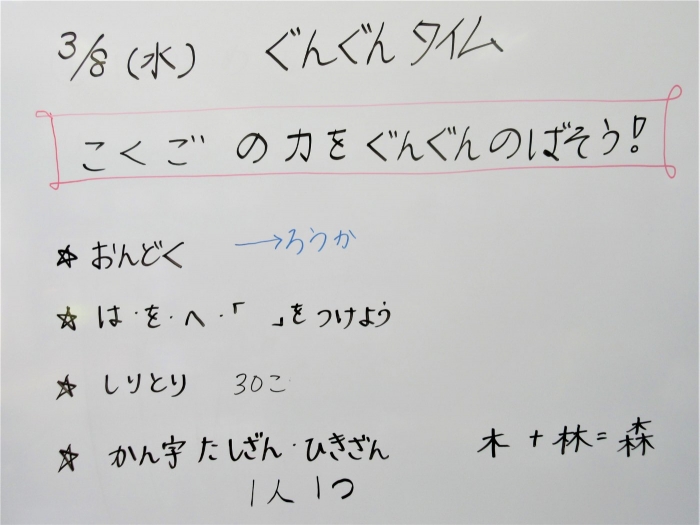 3/8(水) ぐんぐんタイム
こくごの力をぐんぐんのばそう!
☆ おんどく →ろうか
☆ は・を・へ・「 」をつけよう
☆ しりとり 30こ
☆ かん字たしざん・ひきざん 木+林=森
1人1つ